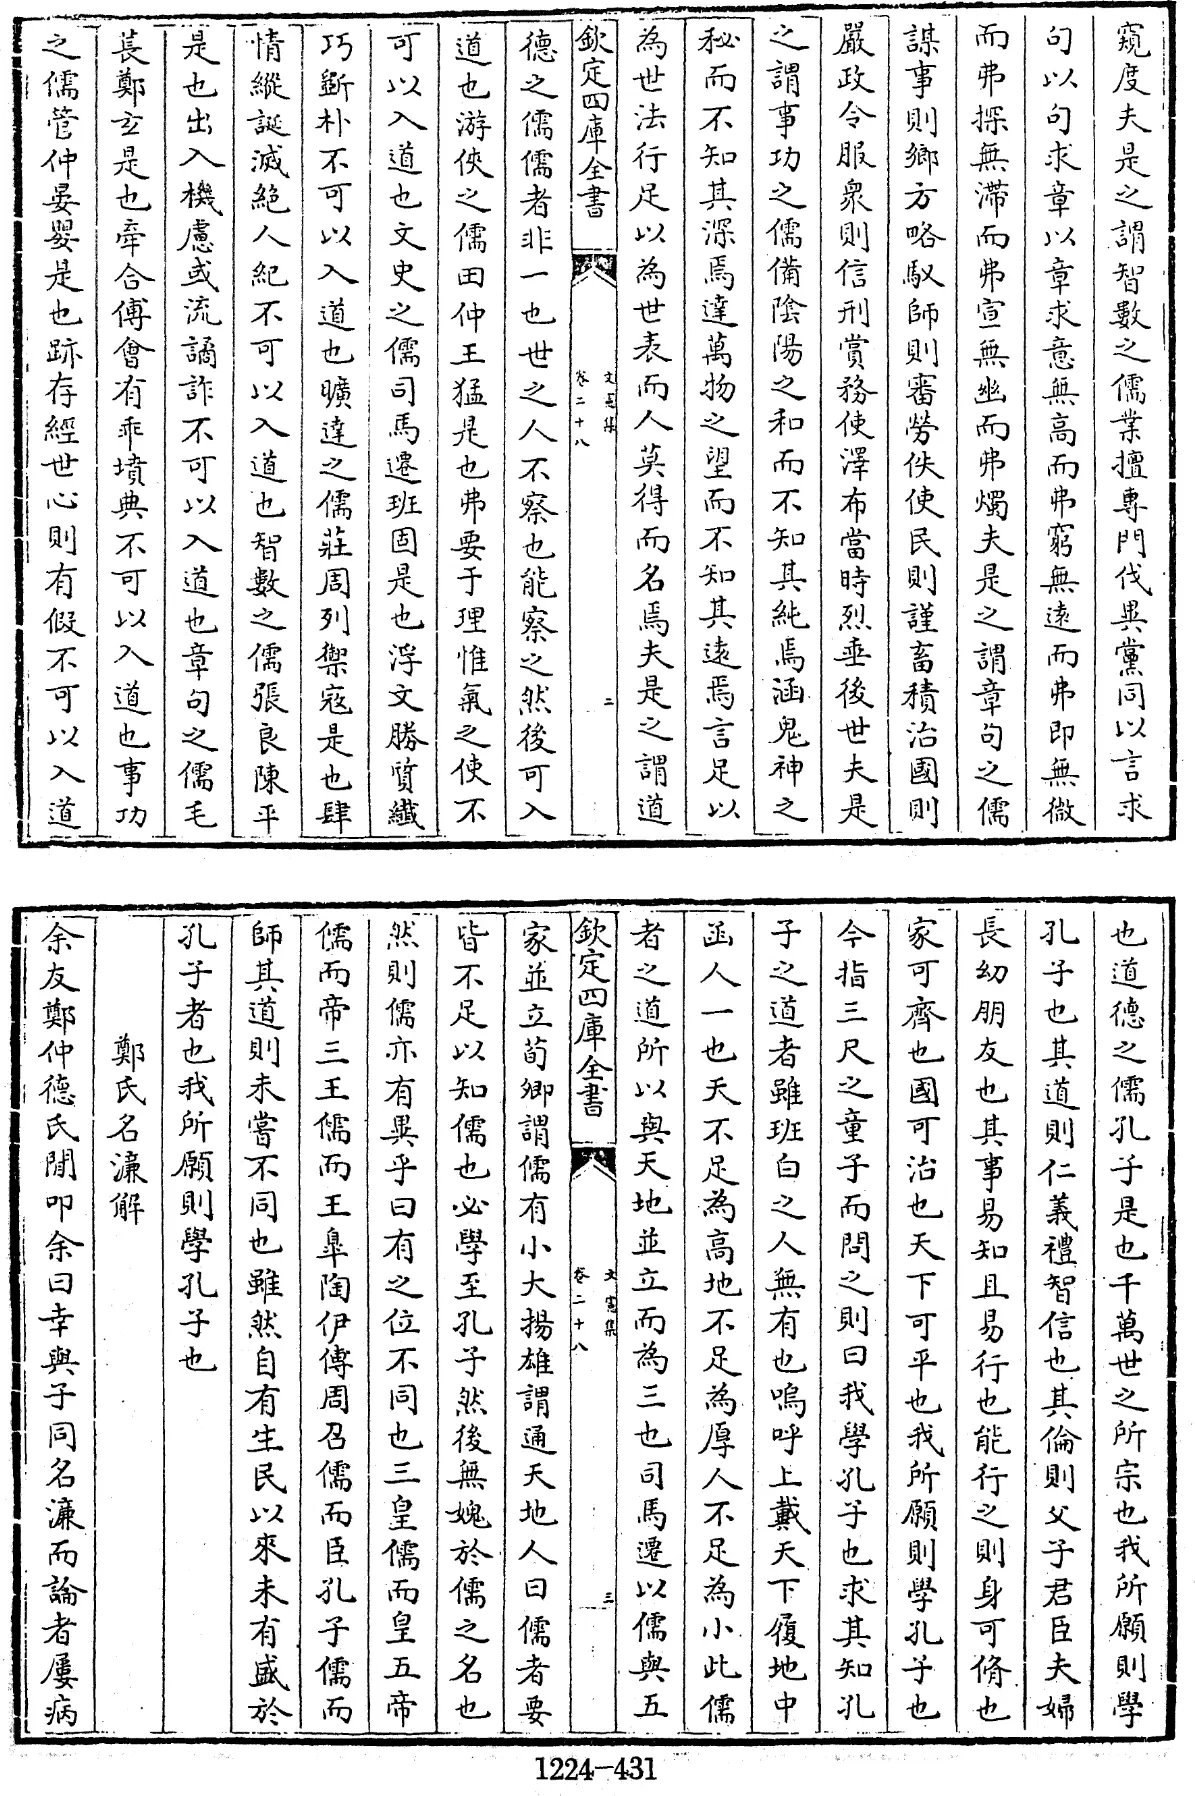 窺度夫是之謂智數之儒業擅專門伐異黨同以言求
句以句求章以章求意無高而弗窮無遠而弗即無微
而弗探無滯而弗宣無幽而弗燭夫是之謂章句之儒
謀事則鄉方略馭師則審勞佚使民則謹畜積治國則
嚴政令服衆則信刑賞務使澤布當時烈垂後世夫是
之謂事功之儒備陰陽之和而不知其純焉涵鬼神之
秘而不知其深焉達萬物之望而不知其遠焉言足以
為世法行足以為世表而人莫得而名焉夫是之謂道
欽定四庫全書
文憲集
卷二十八
二
德之儒儒者非一也世之人不察也能察之然後可入
道也游俠之儒田仲王猛是也弗要于理惟氣之使不
可以入道也文史之儒司馬遷班固是也浮文勝質纖
巧斲朴不可以入道也曠達之儒莊周列禦寇是也肆
情縱誕滅絕人紀不可以入道也智數之儒張良陳平
是也出入機慮或流譎詐不可以入道也章句之儒毛
萇鄭玄是也牽合傅會有乖墳典不可以入道也事功
之儒管仲晏嬰是也跡存經世心則有假不可以入道
也道德之儒孔子是也千萬世之所宗也我所願則學
孔子也其道則仁義禮智信也其倫則父子君臣夫婦
長幼朋友也其事易知且易行也能行之則身可脩也
家可齊也國可治也天下可平也我所願則學孔子也
今指三尺之童子而問之則曰我學孔子也求其知孔
子之道者雖班白之人無有也嗚呼上戴天下履地中
函人一也天不足為高地不足為厚人不足為小此儒
者之道所以與天地並立而為三也司馬遷以儒與五
欽定四庫全書
文憲集
卷二十八
三
家並立荀卿謂儒有小大揚雄謂通天地人曰儒者要
皆不足以知儒也必學至孔子然後無媿於儒之名也
然則儒亦有異乎曰有之位不同也三皇儒而皇五帝
儒而帝三王儒而王臯陶伊傅周召儒而臣孔子儒而
師其道則未嘗不同也雖然自有生民以來未有盛於
孔子者也我所願則學孔子也
鄭氏名濂解
余友鄭仲德氏閒叩余曰幸與子同名濂而論者屢病
1224-431